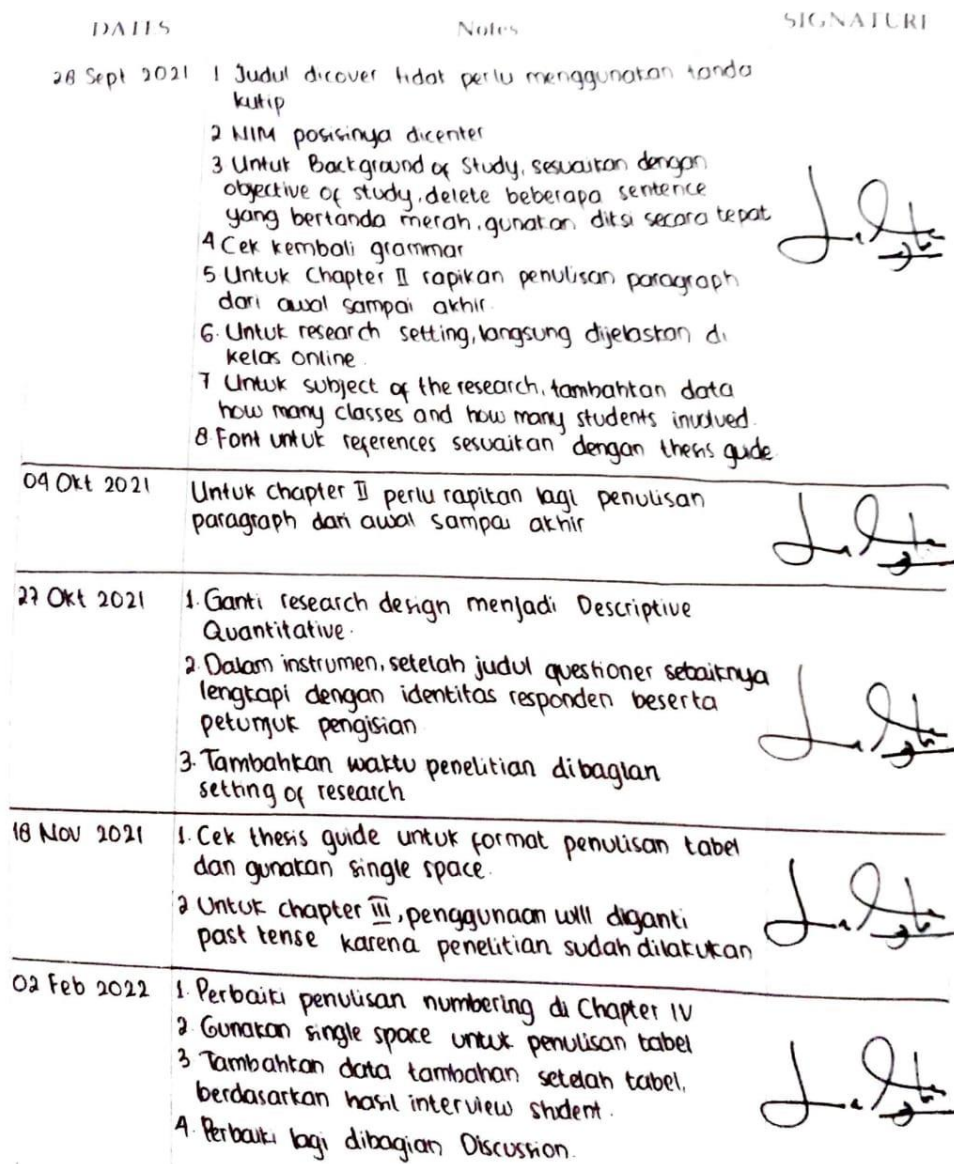 DATES Notes SIGNATURE
28 Sept 2021 1 Judul dicover tidak perlu menggunakan tanda
kutip
2 NIM posisinya dicenter
3 Untuk Background of Study, sesuaikan dengan
objective of study, delete beberapa sentence
yang bertanda merah, gunakan diksi secara tepat
4 Cek kembali grammar
5 Untuk Chapter II rapikan penulisan paragraph
dari awal sampai akhir.
6. Untuk research setting, langsung dijelaskan di
kelas online.
7 Untuk subject of the research, tambahkan data
how many classes and how many students involved.
8 Font untuk references sesuaikan dengan thesis guide.
04 Okt 2021 Untuk chapter II perlu rapikan lagi penulisan
paragraph dari awal sampai akhir
27 Okt 2021 1. Ganti research design menjadi Descriptive
Quantitative.
2. Dalam instrumen, setelah judul questioner sebaiknya
lengkapi dengan identitas responden beserta
petunjuk pengisian
3. Tambahkan waktu penelitian dibagian
setting of research
18 Nov 2021 1. Cek thesis guide untuk format penulisan tabel
dan gunakan single space.
2 Untuk chapter III, penggunaan will diganti
past tense karena penelitian sudah dilakukan
02 Feb 2022 1. Perbaiki penulisan numbering di Chapter IV
2. Gunakan single space untuk penulisan tabel
3 Tambahkan data tambahan setelah tabel,
berdasarkan hasil interview student.
4. Perbaiki lagi dibagian Discussion.